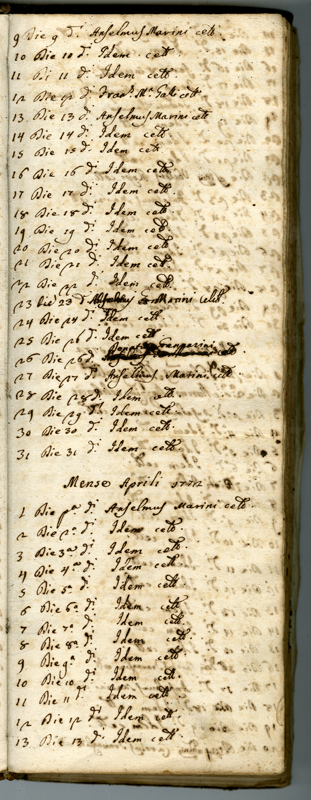 9 Die 9 d.ᵃ Anselmus Marini cetᵗ.
10 Die 10 d.ᵃ Idem cetᵗ
11 Di 11 d.ᵃ Idem cetᵗ.
12 Die 12 d.ᵃ cetᵗ
13 Die 13 d.ᵃ Anselmus Marini cetᵗ.
14 Die 14 d.ᵃ Idem cetᵗ
15 Die 15 d.ᵃ Idem cetᵗ
16 Die 16 d.ᵃ Idem cetᵗ.
17 Die 17 d.ᵃ Idem cetᵗ.
18 Die 18 d.ᵃ Idem cetᵗ.
19 Die 19 d.ᵃ Idem cetᵗ.
20 Die 20 d.ᵃ Idem cetᵗ.
21 Die 21 d.ᵃ Idem cetᵗ.
22 Die 22 d.ᵃ Idem cetᵗ.
23 Die 23 d.ᵃ Marini cetᵗ.
24 Die 24 d.ᵃ Idem cetᵗ.
25 Die d.ᵃ Idem cetᵗ
26 Die 26 d.ᵃ cetᵗ
27 Die 27 d.ᵃ Anselmus Marini cetᵗ
28 Die 28 d.ᵃ Idem cetᵗ.
29 Die 29 d.ᵃ Idem cetᵗ.
30 Die 30 d.ᵃ Idem cetᵗ.
31 Die 31 d.ᵃ Idem cetᵗ.
Mense Aprili 1772
1 Die pᵃ d.ᵃ Anselmus Marini cetᵗ.
2 Die 2ᵃ d.ᵃ Idem cetᵗ.
3 Die 3ᵃ d.ᵃ Idem cetᵗ.
4 Die 4ᵃ d.ᵃ Idem cetᵗ.
5 Die 5ᵃ d.ᵃ Idem cetᵗ.
6 Die 6ᵃ d.ᵃ Idem cetᵗ.
7 Die 7ᵃ d.ᵃ Idem cetᵗ.
8 Die 8ᵃ d.ᵃ Idem cetᵗ.
9 Die 9ᵃ d.ᵃ Idem cetᵗ.
10 Die 10 d.ᵃ Idem cetᵗ.
11 Die 11 d.ᵃ Idem cetᵗ
12 Die 12 d.ᵃ Idem cetᵗ.
13 Die 13 d.ᵃ Idem cetᵗ.